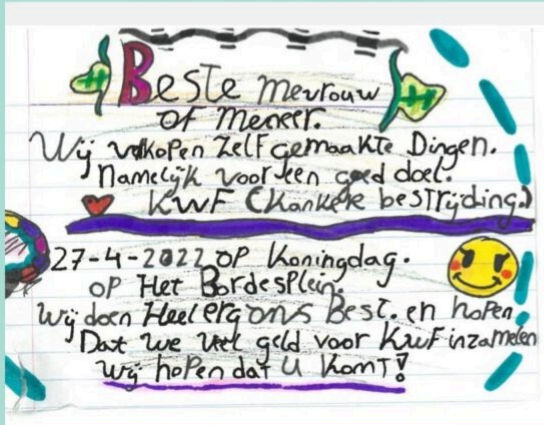 Beste mevrouw
of meneer.
Wij verkopen Zelf gemaakte Dingen.
Namelijk voor een goed doel.
KWF (Kanker bestrijding.)
27-4-2022 op Koningdag.
op Het Bordesplein.
Wij doen Heel erg ons Best. en hopen
Dat we veel geld voor KWF inzamelen
Wij hopen dat U komt!